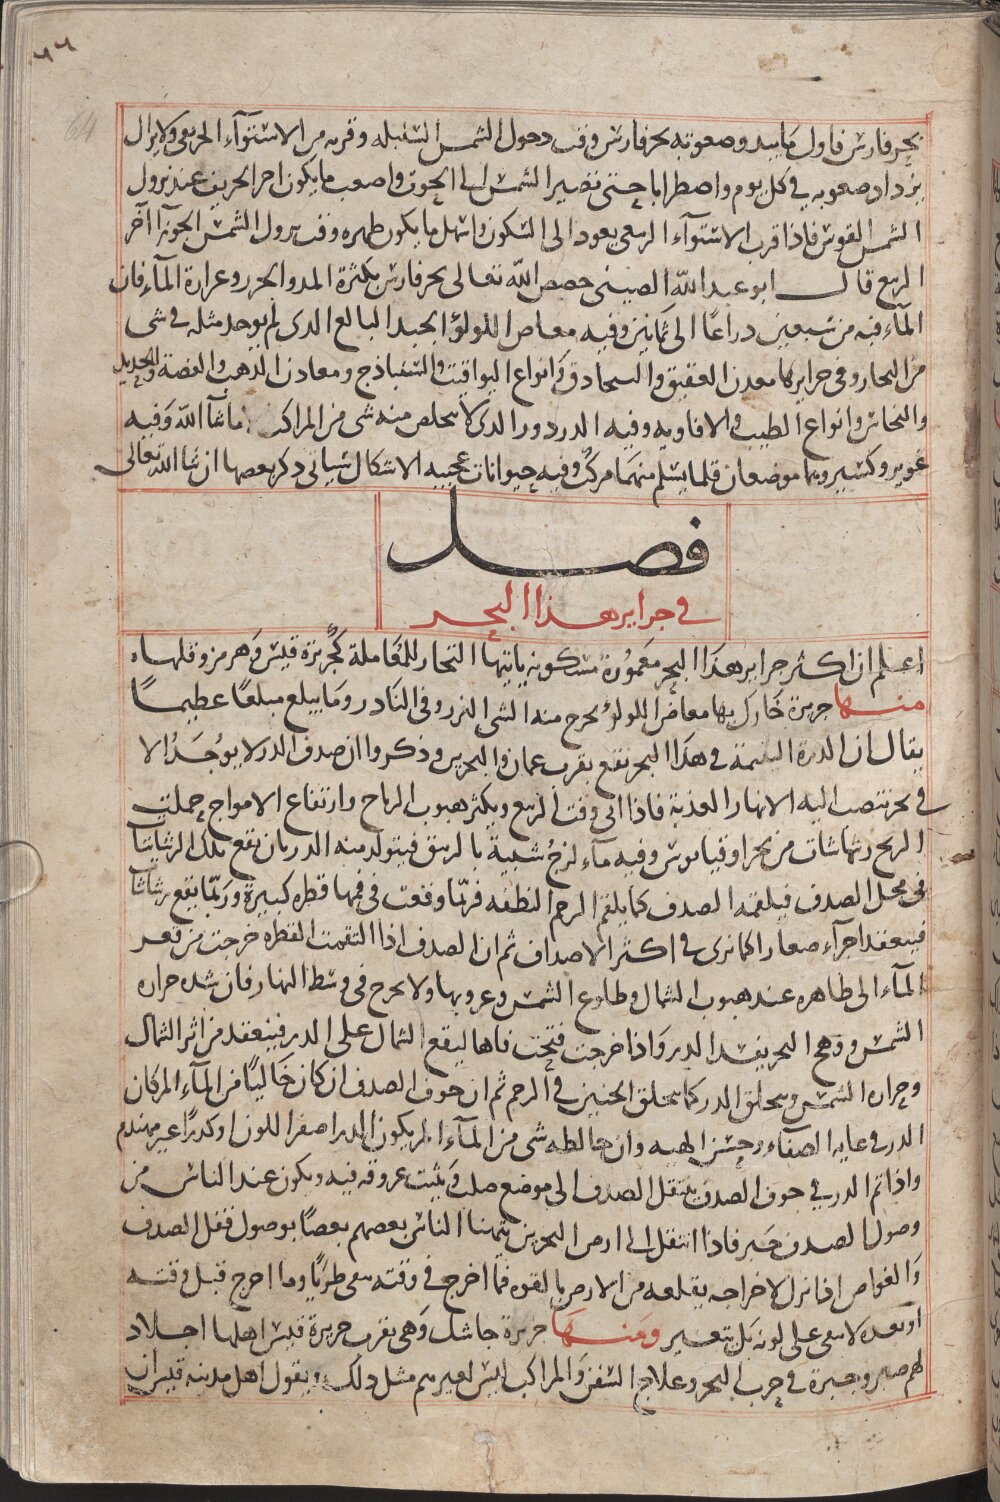 ٦٦
64
بحر فارس فاول ما يبدو صعوبة بحر فارس وقت دخول الشمس السنبله وقربه من الاستوآء الخريفي ولا يزال
يزداد صعوبه في كل يوم واضطرابا حتى تصير الشمس الى الحوت واصعب ما يكون اخر الخريف عند نزول
الشمس القوس فاذا قرب الاستوآء الربيعي يعود الى السكون واسهل ما يكون ظهره وقت نزول الشمس الجوزا آخر
الربيع قال ابو عبد الله الصيني خصص الله تعالى بحر فارس بكثرة المد والجزر وغزارة المآء فان
المآء فيه من سبعين دراعًا الى ثمانين وفيه معاص اللولؤ الجيد البالع الدى لم يوجد مثله في شى
من البحار وفى جرايرها معدن العقيق والسجادق وانواع اليواقيت والسنباذج ومعادن الدهب والفضة والحديد
والنحاس وانواع الطيب والافاويه وفيه الدردور الدى لا يتخلص منه شى من المراكب ما شآ الله وفيه
عوير وكسير وهما موضعان قلما يسلم منهما مركب وفيه حيوانات عجيبه الاشكال سياتى دكر بعصها ان شا الله تعالى
فصل
في جراير هذا البحر
اعلم ان اكثر جراير هذا البحر معمورة مسكونه ياتيها التجار للمعاملة كجزيرة قيس وهرمز وقلهاه
منها جريرة خارك بها معاص اللولؤ يخرج منه الشى النزر وفى النادر وما يبلع مبلعًا عطيمًا
يقال ان الدرة اليتيمة في هذا البحر تقع بقرب عمان والبحرين وذكروا ان صدف الدر لا يوجد الا
في بحر تنصب اليه الانهار العذبة فاذا اتى وقت الربيع ويكثر هبوب الرياح وارتفاع الامواج حملت
الريح رشاشات من بحر اوقيانوس وفيه مآء لزج شبيه بالزيبق فيتولد منه الدر بان يقع تلك الرشاشات
فى محل الصدف فيلقمه الصدف كما يلقم الرحم النطفه فربما وقعت في فمها قطره كبيرة وربما يقع رشاشا
فينعقد اجزآء صعارا كما ترى في اكثر الاصداف ثم ان الصدف اذا التقمت القطره خرجت من قعر
المآء الى ظاهره عند هبوب الشمال وطلوع الشمس وغروبها ولا يخرج فى وسط النهار فان شده حراره
الشمس ووهج البحر يفسد الدر واذا خرجت فتحت فاها ليقع الشمال على الدر فينعقد من اثر الشمال
وحراره الشمس ويتخلق الدر كما يتخلق الجنين في الرحم ثم ان جوف الصدف ان كان خاليًا من المآء المر كان
الدر في غايه الصفاء وحسن الهيه وان خالطه شى من المآء المر يكون الدر اصفر اللون او كدرًا غير مهندم
واذا تم الدر في جوف الصدف ينتقل الصدف الى موضع صلب ويثبت عروقه فيه ويكون عند الناس من
وصول الصدف خبر فاذا انتقل الى ارص البحرين يتهنا الناس بعصهم بعصًا بوصول قفل الصدف
والغواص اذا نزل لاخراجه يقلعه من الارص بالقوه فما اخرج في وقته يبقى طريًا وما اخرج قبل وقته
او بعده لا يبقى على لونه بل يتغير ومنها جريرة جاشك وهى بقرب جريرة قيس اهلها اجلاد
لهم صبر وخبرة في حرب البحر وعلاج السفن والمراكب ليس لعيرهم مثل ذلك ويقول اهل مدينه قيس ان